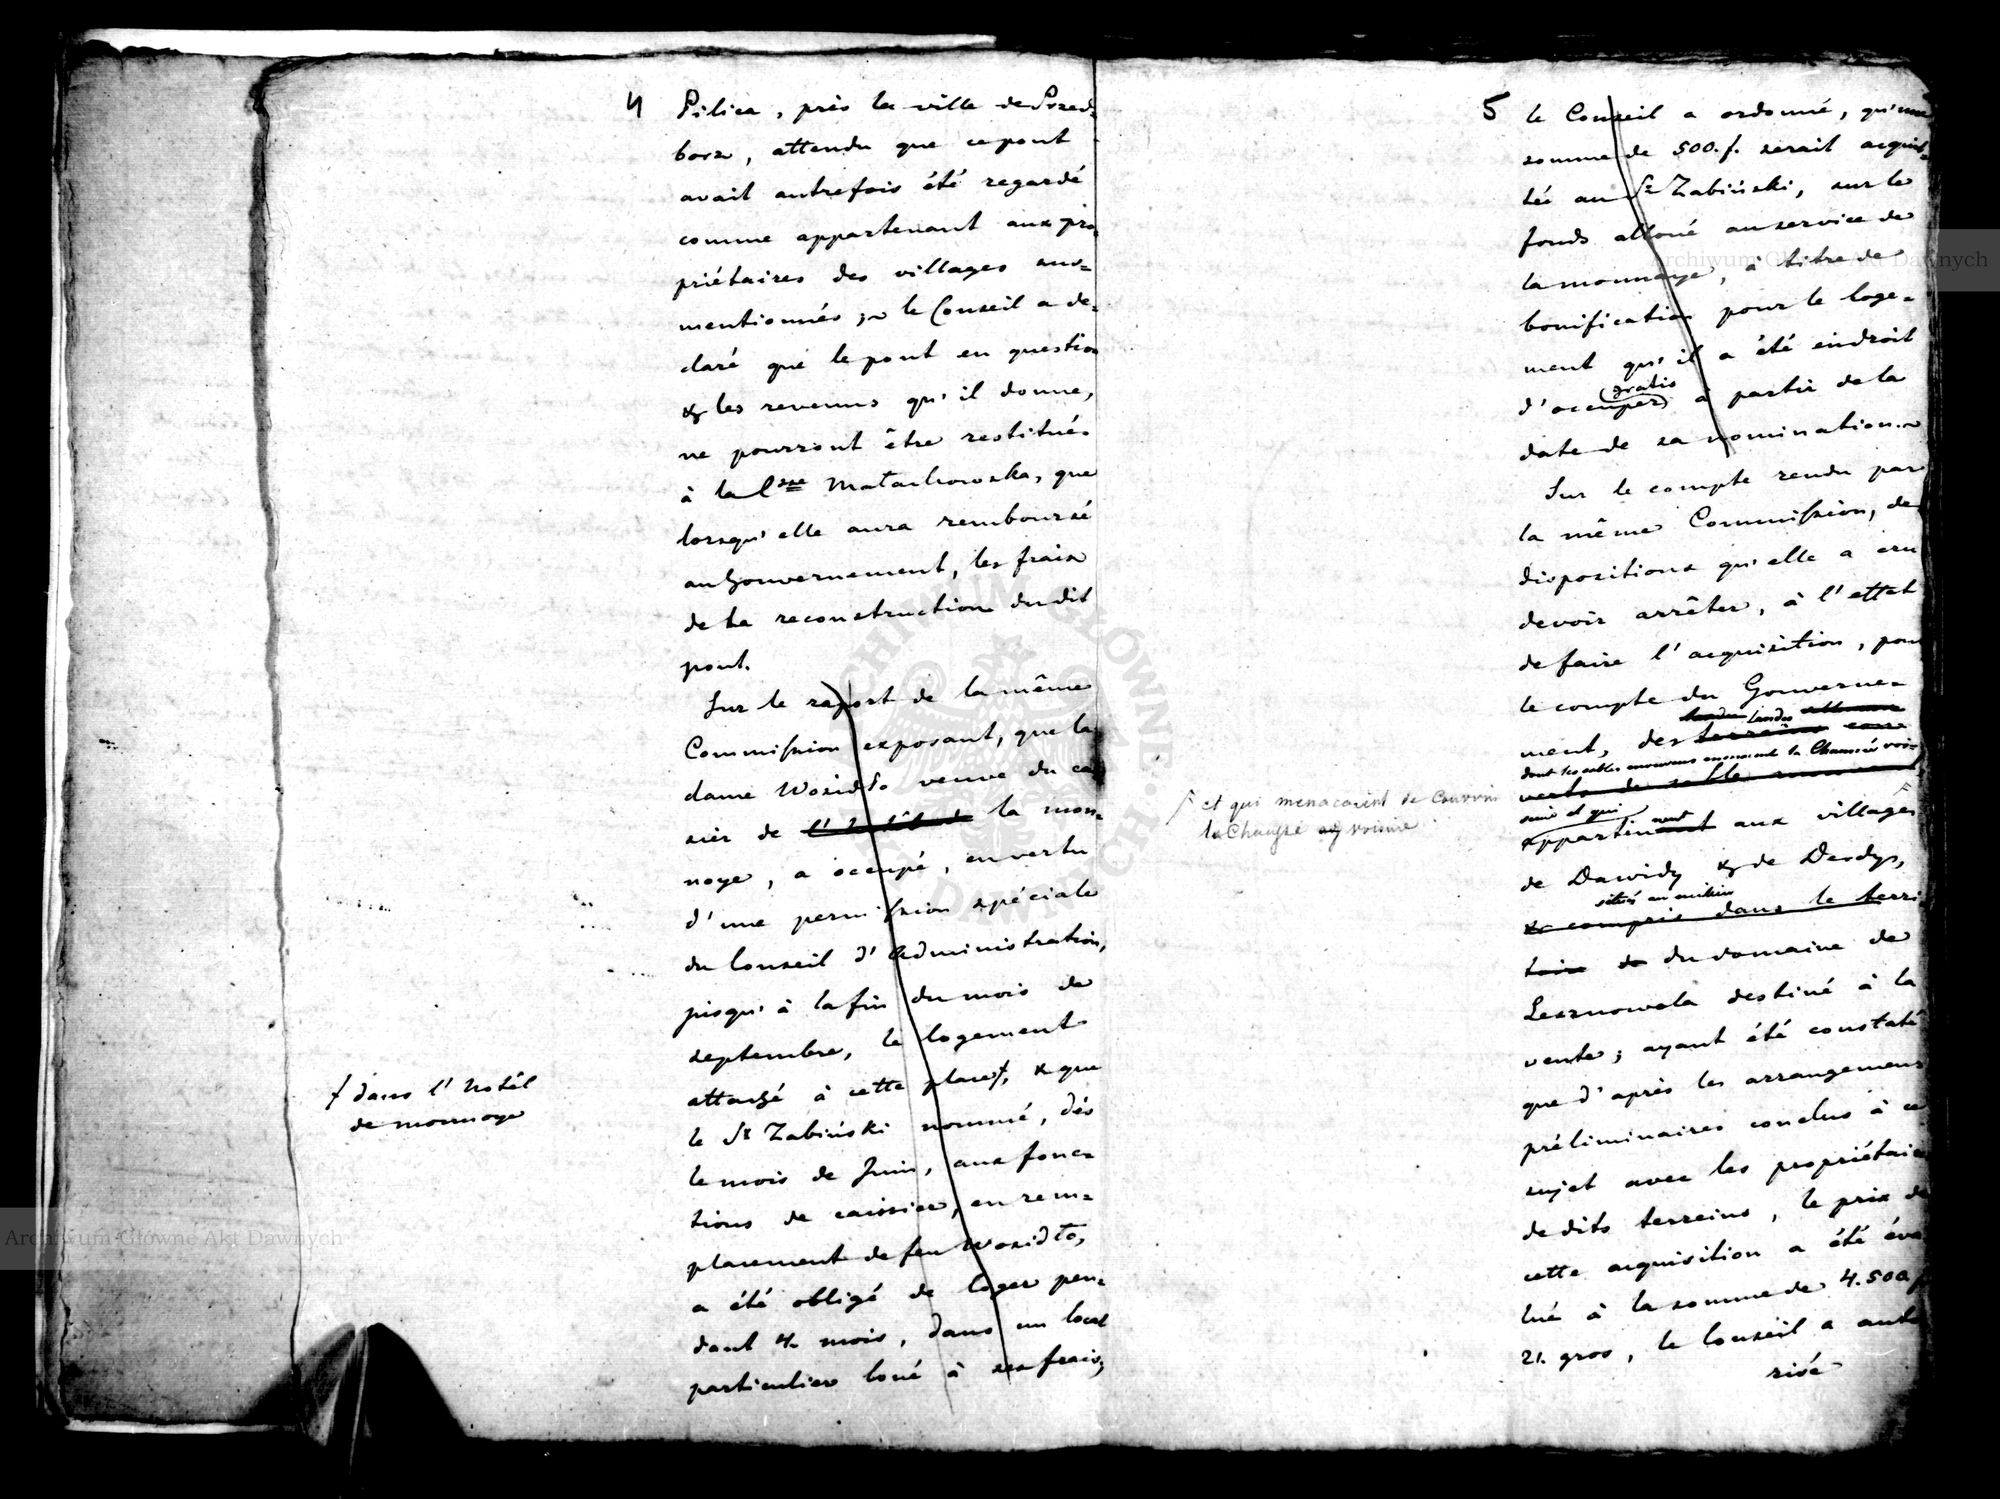 4
Pilica, près la ville de Przed-
borz, attendu que ce pont
avait autrefois été regardé
comme appartenant aux pro-
priétaires des villages sus-
mentionnés; le Conseil a dé-
claré que le pont en question
& les revenus qu'il donne,
ne pourront être restitués
à la Csse Małachowska, que
lorsqu'elle aura remboursé
au Gouvernement, les frais
de la reconstruction du dit
pont.
Sur le raport de la même
Commission exposant, que la
dame Woxidło veuve du cais-
sier de la mon-
noye, a occupé, en vertu
d'une permission spéciale
du Conseil d'Administration,
jusqu'à la fin du mois de
septembre, le logement
attaché à cette place, & que
le Sr Zabiński nommé, dès
le mois de Juin, aux fonc-
tions de caissier, en rem-
placement de feu Woxidło,
a été obligé de loger pen-
dant 4 mois, dans un local
particulier loué à ses frais;
dans l'hotêl
de monnoye
5
le Conseil a ordonné, qu'une
somme de 500. f. serait acquit-
tée au Sr Zabiński, sur le
fonds alloué au service de
la monnaye, à titre de
bonification pour le loge-
ment qu'il a été en droit
gratis
d'occuper à partir de la
date de sa nomination.
Sur le compte rendu par
la même Commission, des
dispositions qu'elle a cru
devoir arrêter, à l'effet
de faire l'acquisition, pour
le compte du Gouverne-
landes
ment, des terreins
dont les sables mouvans encombrent la Chaussée voi-
verts de sable mouvant
sine et qui
appartiennent aux villages
de Dawidy & de Derdy,
situés au milieu
& compris dans le terri
toire de du domaine de
Lesznowola destiné à la
vente; ayant été constaté
que d'après les arrangemens
préliminaires conclus à ce
sujet avec les propriétaires
de dits terreins, le prix de
cette acquisition a été éva-
lué à la somme de 4.500 f
21. gros, le Conseil a auto
risé
et qui menaçaient de couvrir
la Chaussé voisine
Archiwum Główne Akt Dawnych
Archiwum Główne Akt Dawnych
ARCHIWUM GŁÓWNE AKT DAWNYCH